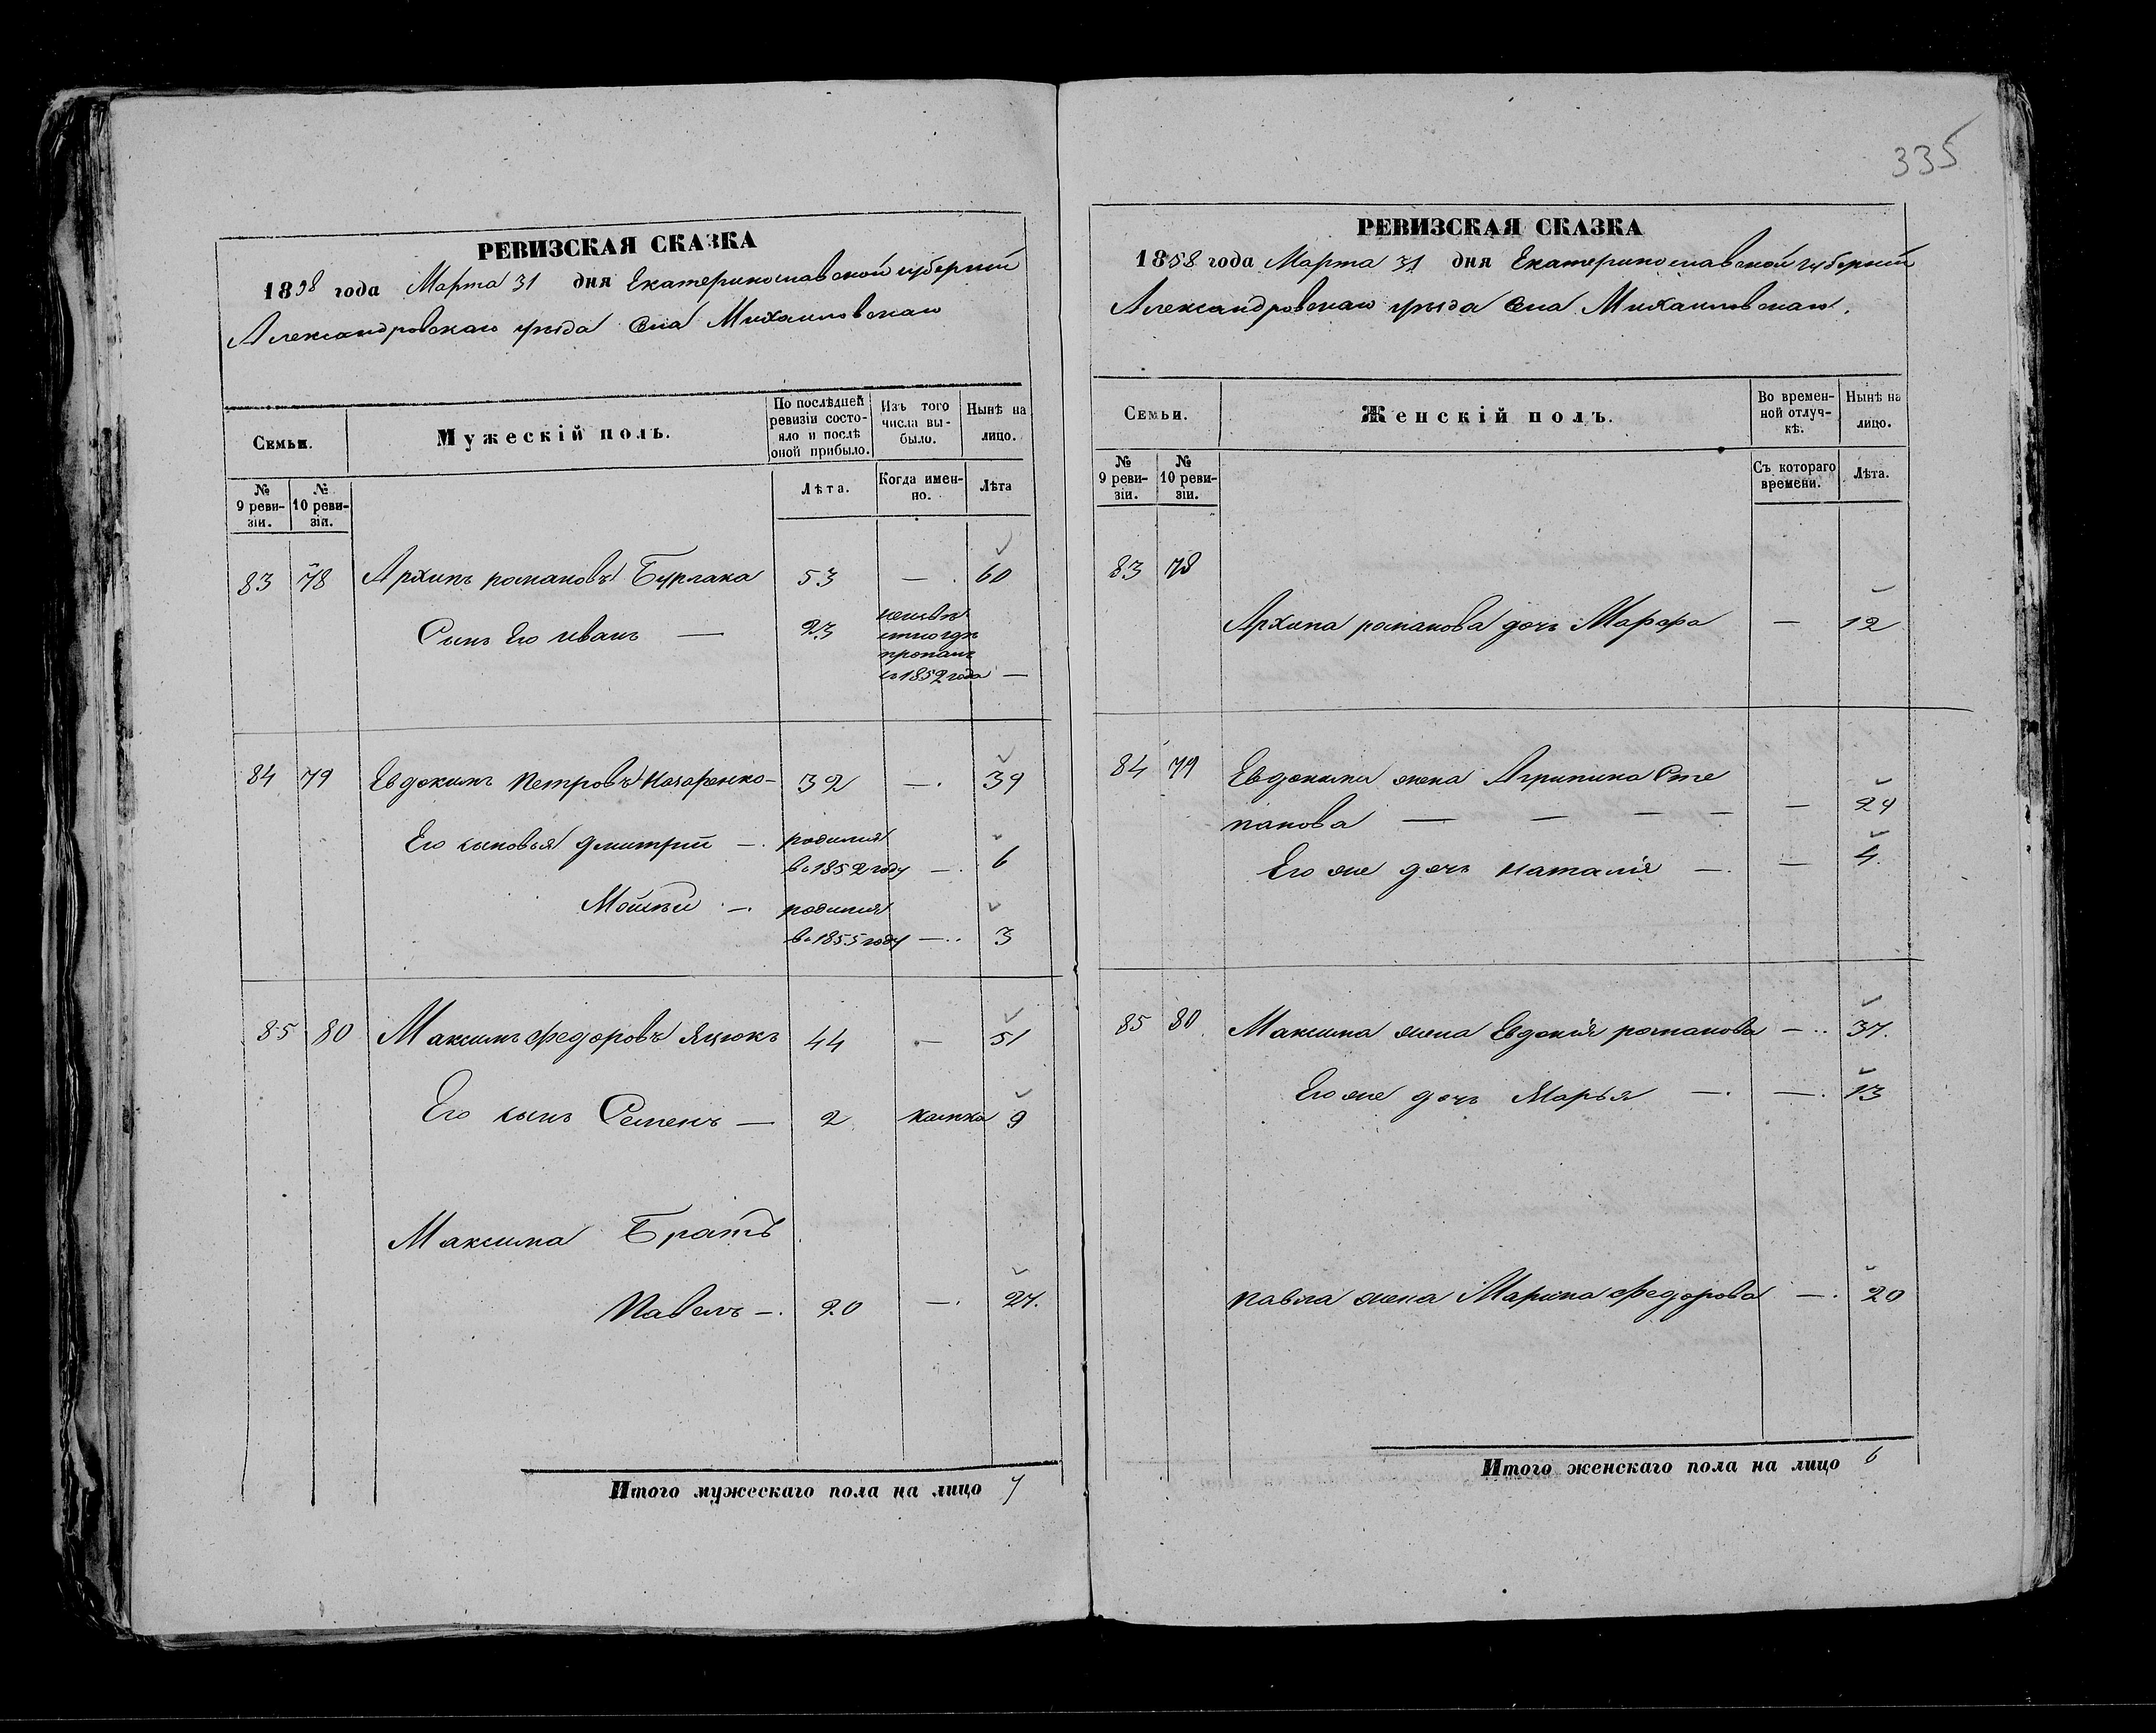 335
РЕВИЗСКАЯ СКАЗКА
1858 года Марта 31 дня Екатеринославской губерніи
Александровскаго уѣзда Села Михайловскаго
Семьи.
Мужескій полъ.
По послѣдней ревизіи состояло и послѣ оной прибыло.
Изъ того числа выбыло.
Нынѣ на лицо.
№ 9 ревизіи.
№ 10 ревизіи.
Лѣта.
Когда именно.
Лѣта
83 78 Архипъ романовъ Бурлака 53 — 60
Сынъ Его иванъ — 23 пропалъ съ 1852 года —
84 79 Евдокимъ Петровъ Назаренко — 32 — 39
Его сыновья дмитрій — родился
въ 1852 году — 6
Моисей — родился
въ 1855 году — 3
85 80 Максимъ Федоровъ Яцюкъ 44 — 51
Его сынъ Семенъ — 2 9
Максима Братъ
Павелъ — 20 — 27.
Итого мужескаго пола на лицо 7
РЕВИЗСКАЯ СКАЗКА
1858 года Марта 31 дня Екатеринославской губерніи
Александровскаго уѣзда Села Михайловскаго.
Семьи.
Женскій полъ.
Во временной отлучкѣ.
Нынѣ на лицо.
№ 9 ревизіи.
№ 10 ревизіи.
Съ котораго времени.
Лѣта.
83 78
Архипа романова дочь Марфа — 12
84 79 Евдокима жена Агрипина Сте
панова — — — — — 24
Его же дочь наталія — — 4.
85 80 Максима жена Евдокія романова — 37.
Его же дочь Марья — — 13
павла жена Марина Федорова — 20
Итого женскаго пола на лицо 6